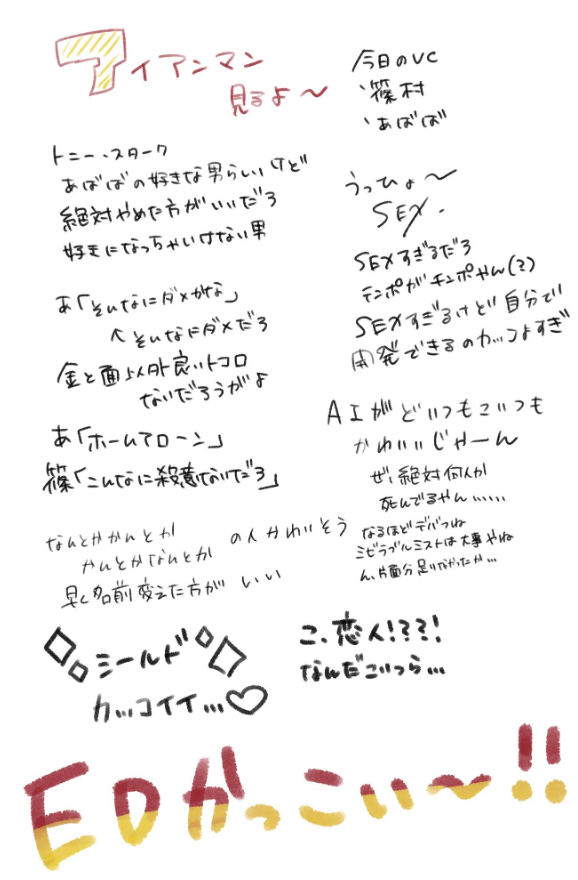 アイアンマン
見るよ～
今日のVC
・篠村
・あばば
トニー・スターク
あばばの好きな男らしいけど
絶対やめた方がいいだろ
好きになっちゃいけない男
うっひょ～
SEX.
SEXすぎるだろ
テンポがチンポやん(?)
SEXすぎるけど自分で
開発できるのカッコよすぎ
あ「そんなにダメかな」
↑そんなにダメだろ
金と面以外良いトコロ
ないだろうがよ
あ「ホームアローン」
篠「こんなに殺意ないだろ」
AIがどいつもこいつも
かわいいじゃーん
ぜ、絶対何人か
死んでるやん……
なるほどデバフね
ミゼラブルミストは大事やね
ん、片面分足りなかったか…
なんとかかんとか
かんとかなんとか
の人かわいそう
早く名前変えた方がいい
シールド
カッコイイ…♡
こ、恋人!???!
なんだこいつら…
EDかっこいい～!!